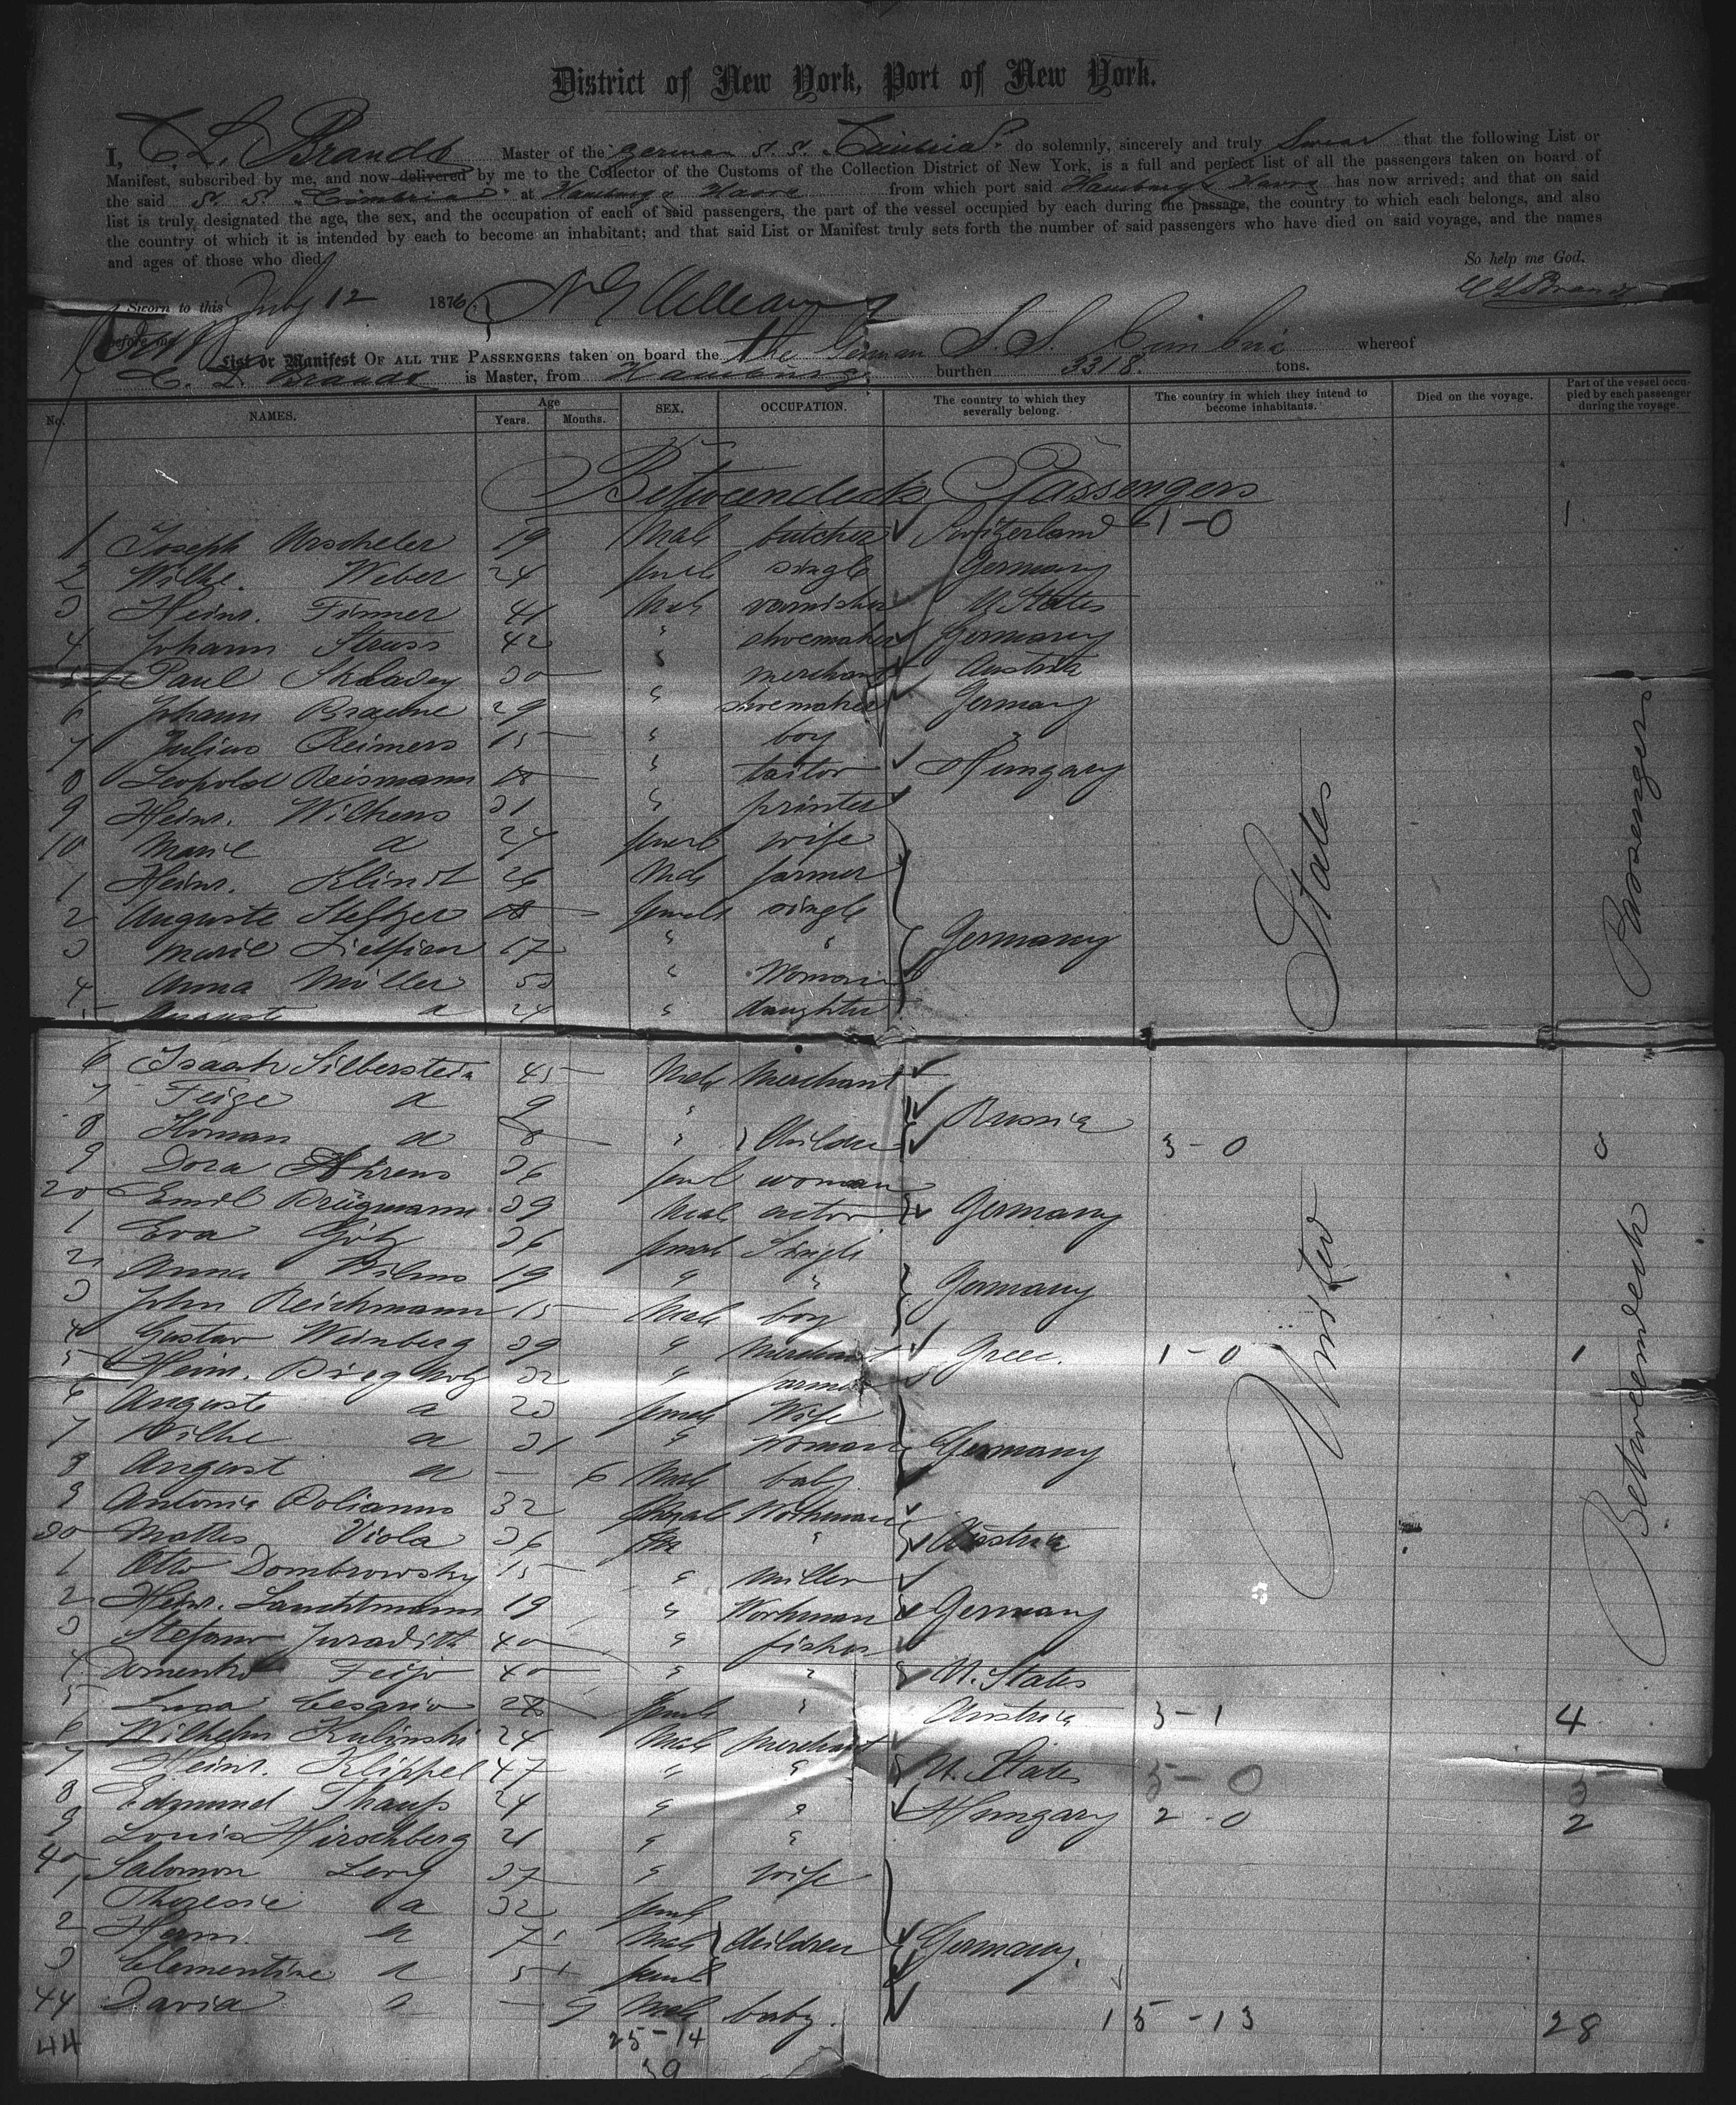 District of New York, Port of New York.
I, C. L. Brandt Master of the German S. S. "Cimbria" do solemnly, sincerely and truly Swear that the following List or
Manifest, subscribed by me, and now delivered by me to the Collector of the Customs of the Collection District of New York, is a full and perfect list of all the passengers taken on board of
the said S. S. "Cimbria" at Hamburg & Havre from which port said Hamburg & Havre has now arrived; and that on said
list is truly designated the age, the sex, and the occupation of each of said passengers, the part of the vessel occupied by each during the passage, the country to which each belongs, and also
the country of which it is intended by each to become an inhabitant; and that said List or Manifest truly sets forth the number of said passengers who have died on said voyage, and the names
and ages of those who died.
So help me God.
Sworn to this July 12 1876
C L Brandt
before me
List or Manifest OF ALL THE PASSENGERS taken on board the the German S. S. Cimbria whereof
C. L. Brandt is Master, from Hamburg burthen 3318. tons.
No. NAMES. Age Years. Months. SEX. OCCUPATION. The country to which they severally belong. The country in which they intend to become inhabitants. Died on the voyage. Part of the vessel occupied by each passenger during the voyage.
Betweendeck Passengers
1 Joseph Urscheler 19 Male butcher Switzerland 1-0 1
2 Wilhe. Weber 24 female single Germany
3 Heinr. Timmer 41 Male varnisher U States
4 Johann Struss 42 " shoemaker Germany
5 Paul Skladey 30 " merchant Austria
6 Johann Braeme 29 " shoemaker Germany
7 Julius Reimers 15 " boy
8 Leopold Reismann 18 " tailor Hungary
9 Heinr. Wilkens 31 " printer
10 Marie a 24 female wife
1 Heinr. Klindt 26 Male farmer
2 Auguste Steltzer 18 female single
3 Marie 17 " " Germany
4 Anna Müller 53 " Woman
5 Auguste a 24 " daughter
6 Isaack Silberstein 45 Male Merchant
7 Feige a 9 " Russia
8 Homan a 8 " Children 3-0 3
9 Dora Ahrens 36 female woman
20 Emil Brügmann 39 Male actor Germany
1 Eva Götz 36 female Single
2 Anna Wilms 19 " " Germany
3 John Reichmann 15 Male boy
4 Gustav Weinberg 39 " Merchant Greec. 1-0 1
5 Heinr. 32 " farmer
6 Auguste a 23 female Wife
7 Wilhe a 31 " woman Germany
8 August a — 6 Male baby
9 Antonio Polianno 32 Male Workman
30 Mattes Viola 36 " Austria
1 Otto Dombrowsky 15 " Miller
2 Heinr. Lauchtmann 19 " Workman Germany
3 Stefano Juradith 40 " fisher
4 Domenko Feijo 40 " " U. States
5 Luca Cesario 28 female " Austria 3-1 4
6 Wilhelm Kulinski 24 Male Merchant
7 Heinr. Klippel 47 " " U. States 5-0 5
8 Edmund Thauss 24 " " Hungary 2-0 2
9 Louis Hirschberg 21 " "
40 Salomon Levy 37 " wife
1 Theresie a 32 female
2 Herm. a 7 Male Children Germany.
3 Clementine a 5 female
44 David a — 9 Male baby.
15-13 28
44
25-14
39
United States
Betweendeck Passengers